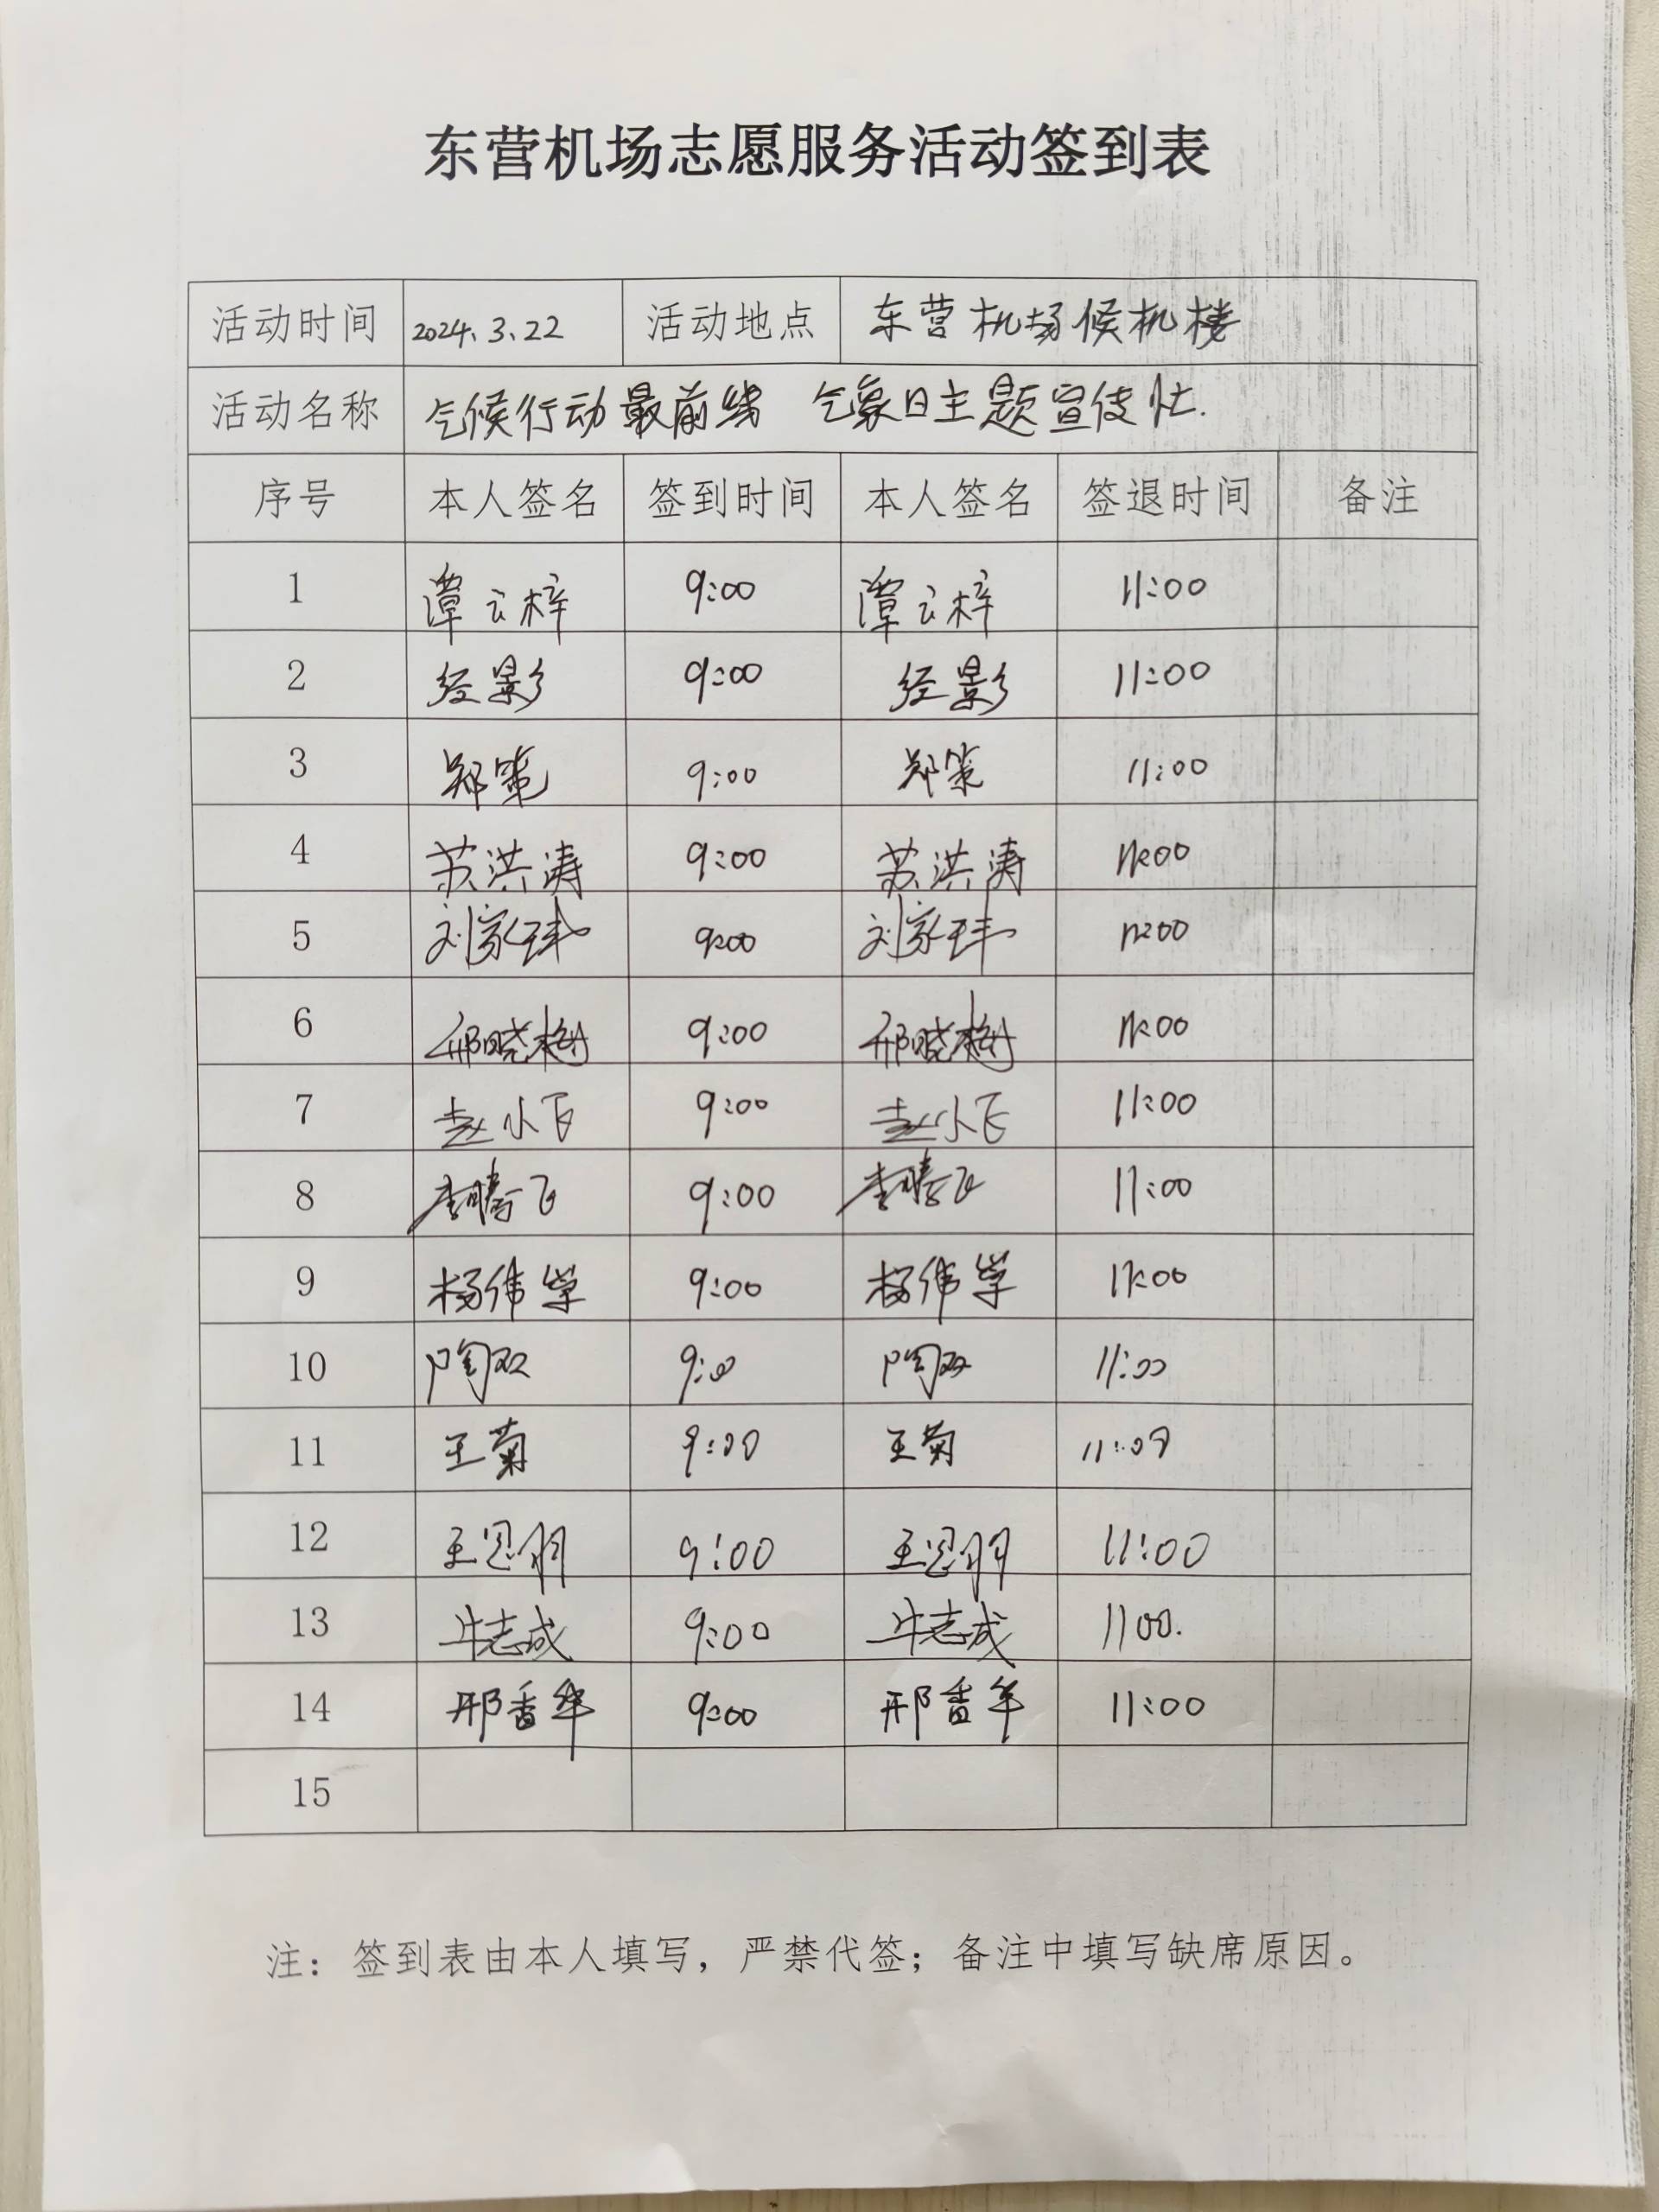 东营机场志愿服务活动签到表
活动时间 2024.3.22 活动地点 东营机场候机楼
活动名称 气候行动最前线 气象日主题宣传忙.
序号 本人签名 签到时间 本人签名 签退时间 备注
1 潭云梓 9:00 潭云梓 11:00
2 经影 9:00 经影 11:00
3 郑策 9:00 郑策 11:00
4 苏洪涛 9:00 苏洪涛 11:00
5 刘家玮 9:00 刘家玮 11:00
6 邢晓梅 9:00 邢晓梅 11:00
7 赵小飞 9:00 赵小飞 11:00
8 李腾飞 9:00 李腾飞 11:00
9 杨伟学 9:00 杨伟学 11:00
10 陶双 9:00 陶双 11:00
11 王菊 9:00 王菊 11:00
12 王思明 9:00 王思明 11:00
13 牛志成 9:00 牛志成 1100.
14 邢香华 9:00 邢香华 11:00
15
注：签到表由本人填写，严禁代签；备注中填写缺席原因。